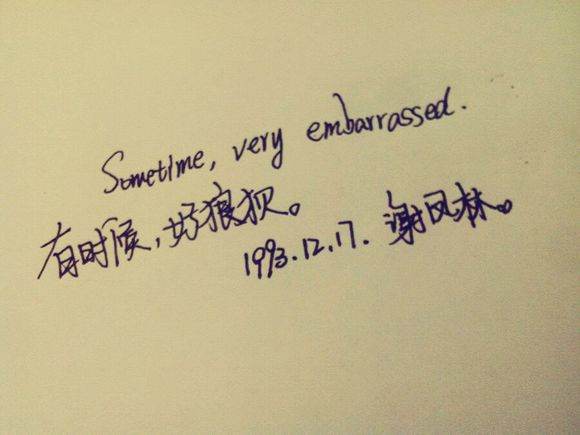 Sometime, very embarrassed.
有时候，好狼狈。
1993.12.17. 谢风林。